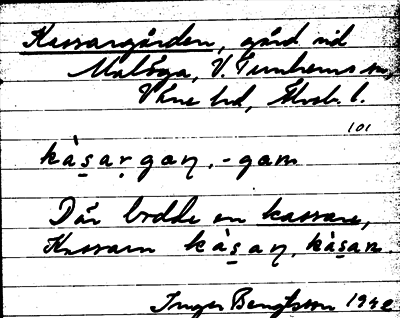 Kassargården, gård vid
Malöga, V. Tunhems sn,
Väne hd, Älvsb. l.
101
kàs̱aṛgan, -gam
Där bodde en kassare,
Kassarn kàs̱an, kàs̱an.
Inger Bengtsson 1942